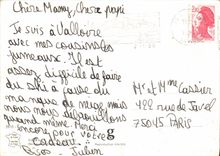 Chère Mamy, cher papi
Je suis à Valloire
avec mes cousins les
jumeaux. Il est
assez difficile de faire
du ski à cause du
manque de neige mais
nous nous débrouillons
quand même. Merci
encore pour votre
cadeau.
Bisos Julien
Mr et Mme Cassier
422 rue de Javel
75015 PARIS